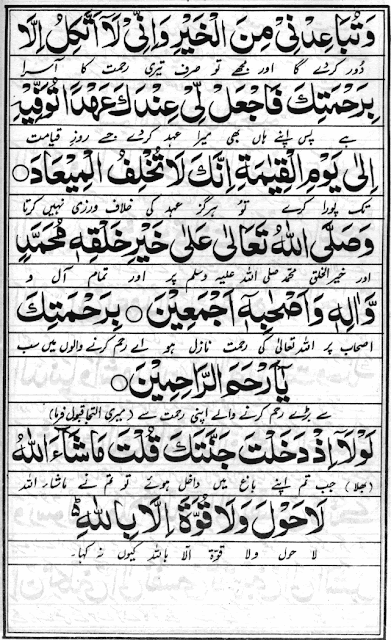 وَتُبَاعِدُنِيْ مِنَ الْخَيْرِ وَاِنِّيْ لَآ اَتَّكِلُ اِلَّا
دُور کرے گا اور مجھے تو صرف تیری رحمت کا آسرا
بِرَحْمَتِكَ فَاجْعَلْ لِّيْ عِنْدَكَ عَهْدًا تُوَفِّيْهِ
ہے پس اپنے ہاں بھی میرا عہد کردے جسے روزِ قیامت
اِلٰى يَوْمِ الْقِيٰمَةِ اِنَّكَ لَا تُخْلِفُ الْمِيْعَادَ○
تک پورا کرے تو ہرگز عہد کی خلاف ورزی نہیں کرتا
وَصَلَّى اللهُ تَعَالٰى عَلٰى خَيْرِ خَلْقِهٖ مُحَمَّدٍ
اور خیر الخلق محمد صلی اللہ علیہ وسلم پر اور تمام آل و
وَّاٰلِهٖ وَاَصْحٰبِهٖ اَجْمَعِيْنَ○ بِرَحْمَتِكَ
اصحاب پر اللہ تعالیٰ کی رحمت نازل ہو اے رحم کرنے والوں میں سب
يَآ اَرْحَمَ الرَّاحِمِيْنَ○
سے بڑے رحم کرنے والے اپنی رحمت سے (میری التجا قبول فرما)
لَوْلَآ اِذْ دَخَلْتَ جَنَّتَكَ قُلْتَ مَا شَآءَ اللهُ
(بھلا) جب تم اپنے باغ میں داخل ہوئے تو تم نے ماشاء اللہ
لَا حَوْلَ وَلَا قُوَّةَ اِلَّا بِاللهِ
لا حول ولا قوۃ الا باللہ کیوں نہ کہا۔